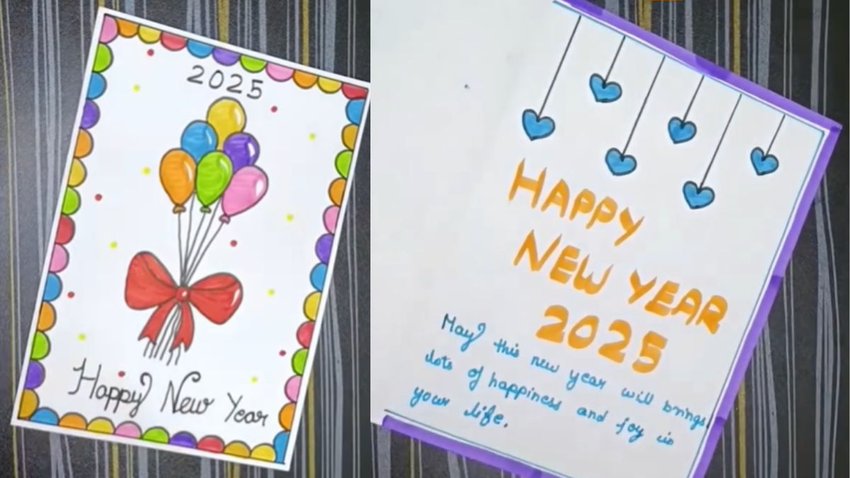 2025
Happy New Year
HAPPY
NEW YEAR
2025
May this new year will brings
lots of happiness and joy in
your life.